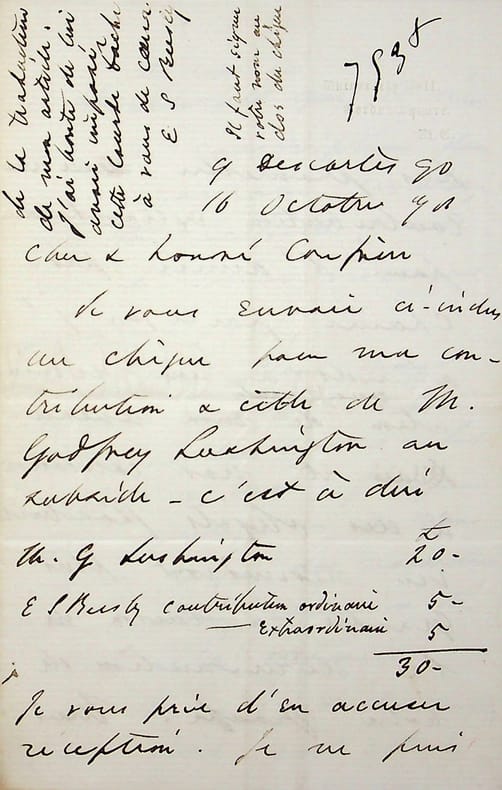 7538
9 Descartes 90
16 Octobre 90
Cher & honoré Confrère
Je vous envoie ci-inclus
un chèque pour ma con-
tribution & celle de M.
Godfrey Lushington au
subside - c'est à dire
£
M. G Lushington 20-
E S Beesly contribution ordinaire 5-
— Extraordinaire 5
30-
Je vous prie d'en accuser
réception. Je ne puis
de la traduction
de mon article.
J'ai honte de lui
avoir imposé
cette lourde tâche
à vous de cœur
E S Beesly
Il faut signer
votre nom au
dos du chèque